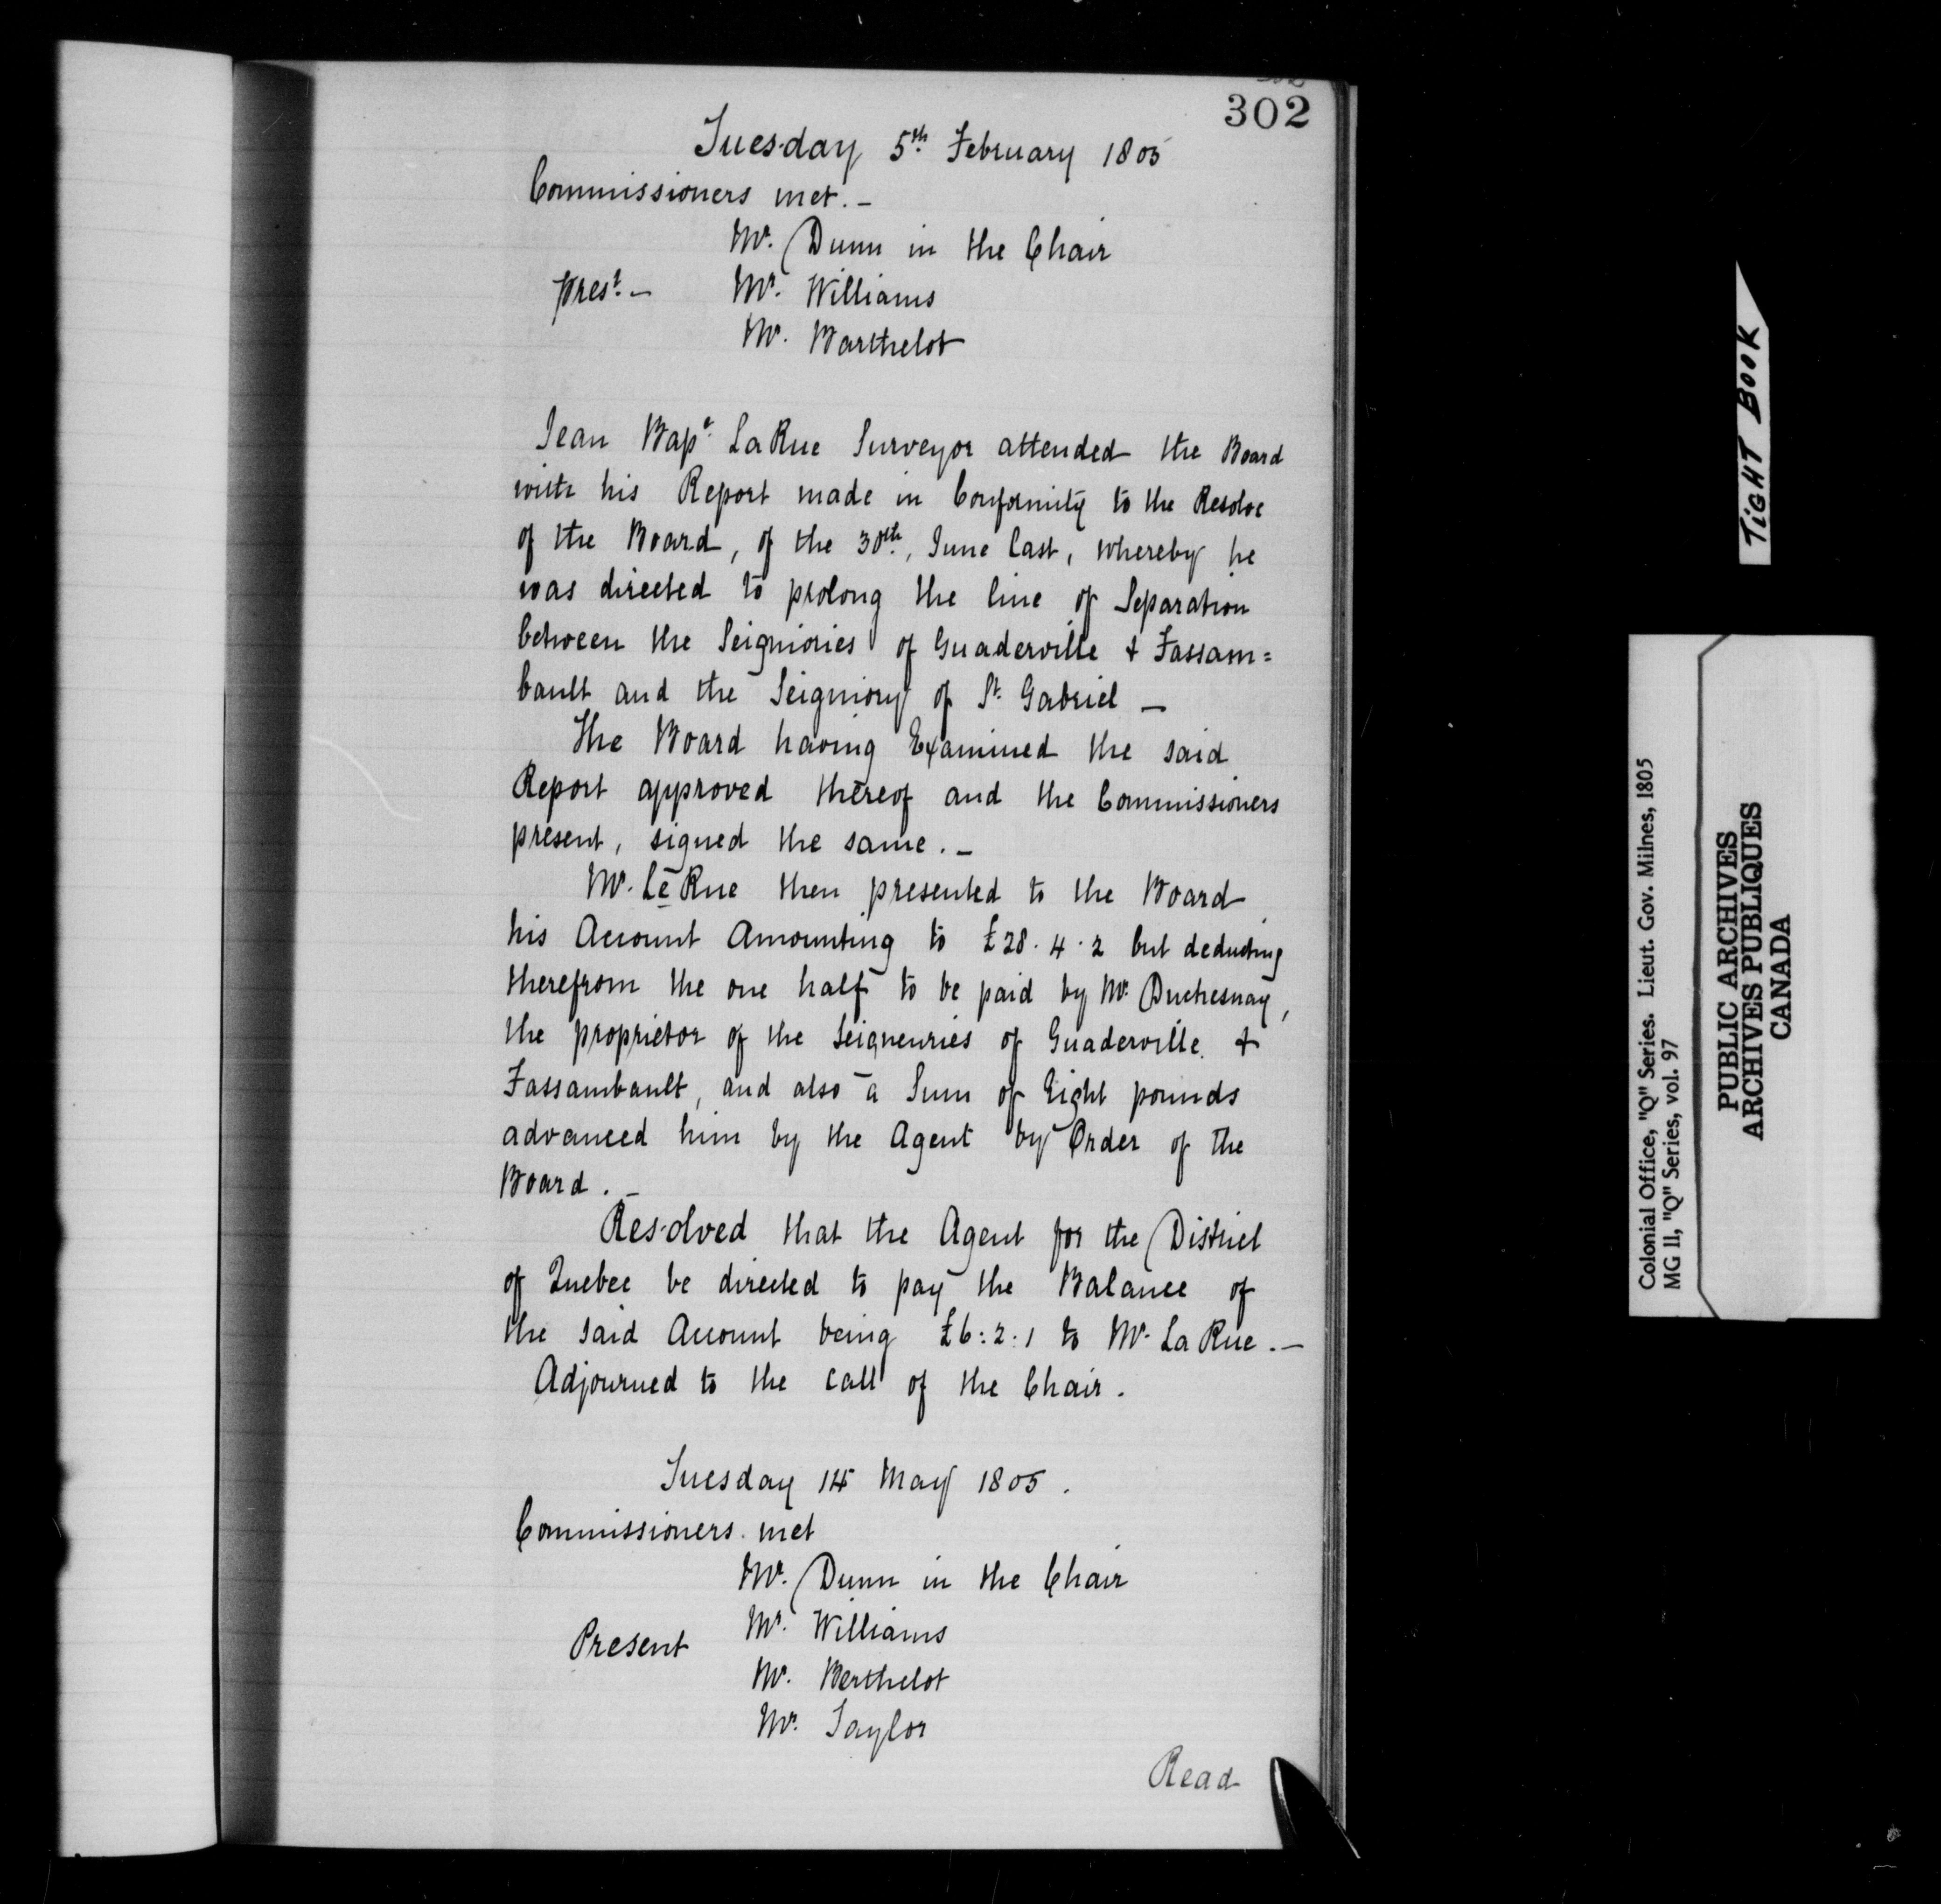 302
Tuesday 5th February 1805
Commissioners met. –
Mr. Dunn in the Chair
prest. – Mr. Williams
Mr. Barthelot
Jean Bapt. LaRue Surveyor attended the Board
with his Report made in Conformity to the Resolve
of the Board, of the 30th, June last, whereby he
was directed to prolong the line of Separation
between the Seigniories of Guaderville & Fassam=
bault and the Seigniory of St. Gabriel –
The Board having Examined the said
Report approved thereof and the Commissioners
present, signed the same. –
Mr. Le Rue then presented to the Board
his Account Amounting to £28. 4. 2 but deducting
therefrom the one half to be paid by Mr. Duchesnay,
the proprietor of the Seigneuries of Guaderville &
Fassambault, and also a Sum of Eight pounds
advanced him by the Agent by Order of the
Board. –
Resolved that the Agent for the District
of Quebec be directed to pay the Balance of
the said Account being £6:2:1 to Mr. La Rue. –
Adjourned to the call of the Chair.
Tuesday 14 May 1805.
Commissioners met
Mr. Dunn in the Chair
Present Mr. Williams
Mr. Berthelot
Mr. Taylor
Read
TiGHT BOOK
Colonial Office, "Q" Series. Lieut. Gov. Milnes, 1805
MG 11, "Q" Series, vol. 97
PUBLIC ARCHIVES
ARCHIVES PUBLIQUES
CANADA